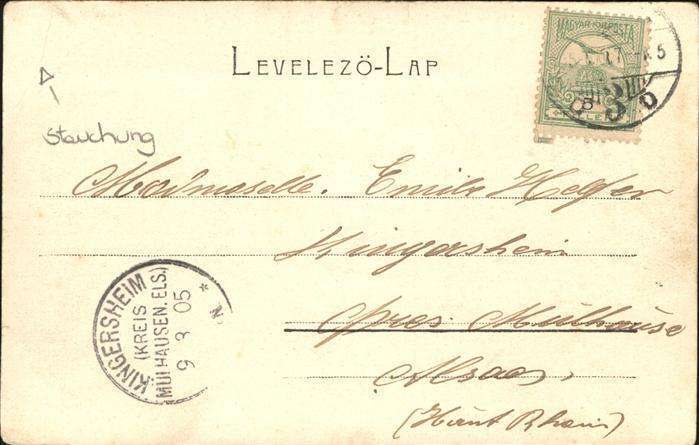 LEVELEZŐ-LAP
MAGYAR KIR. POSTA
Stauchung
Mademoiselle. Emilie Helfer
Kingersheim
près Mulhouse
Alsace,
(Haut Rhein)
KINGERSHEIM
(KREIS
MÜLHAUSEN. ELS.)
9 3 05
* N.